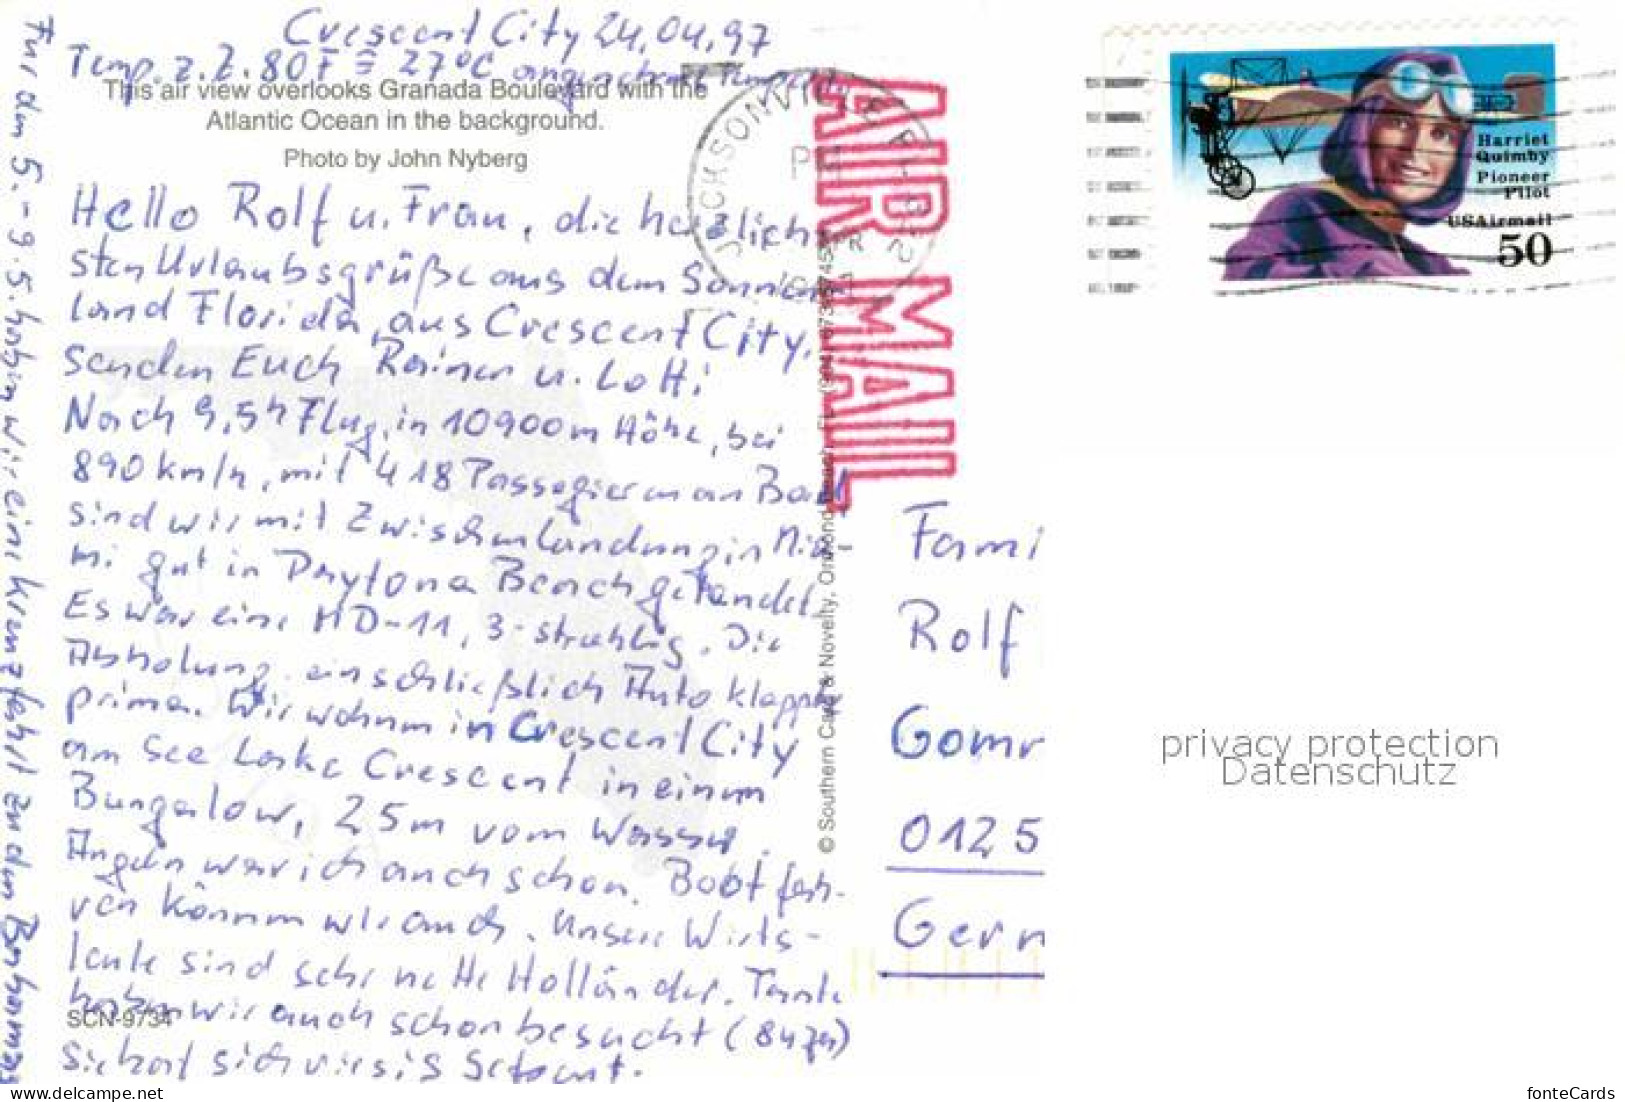 Crescent City 24.04.97
Temp. z. Z. 80 F ≙ 27°C angenehme Temper.
This air view overlooks Granada Boulevard with the
Atlantic Ocean in the background.
Photo by John Nyberg
Hello Rolf u. Frau, die herzlich-
sten Urlaubsgrüße aus dem Sonnen-
land Florida, aus Crescent City,
senden Euch Rainer u. Lotti
Nach 9,5 h Flug, in 10900 m Höhe, bei
890 km/h, mit 418 Passegieren an Bord
sind wir mit Zwischenlandung in Mia-
mi gut in Daytona Beach gelandet.
Es war eine MD-11, 3-strahlig. Die
Abholung einschließlich Auto klappte
prima. Wir wohnen in Crescent City
am See Lake Crescent in einem
Bungalow, 25 m vom Wasser.
Angeln war ich auch schon. Boot fah-
ren können wir auch. Unsere Wirts-
leute sind sehr nette Holländer. Tante
haben wir auch schon besucht (84 J.)
Sie hat sich riesig gefreut.
SCN-9734
Für den 5. - 9.5. haben wir eine Kreuzfahrt zu den Bahamas
© Southern Card & Novelty, Ormond Beach, FL
JACKSONVILLE FL
AIR MAIL
Harriet
Quimby
Pioneer
Pilot
USAirmail
50
Fami
Rolf
Gomr
0125
Germ
privacy protection
Datenschutz
www.delcampe.net
fonteCards